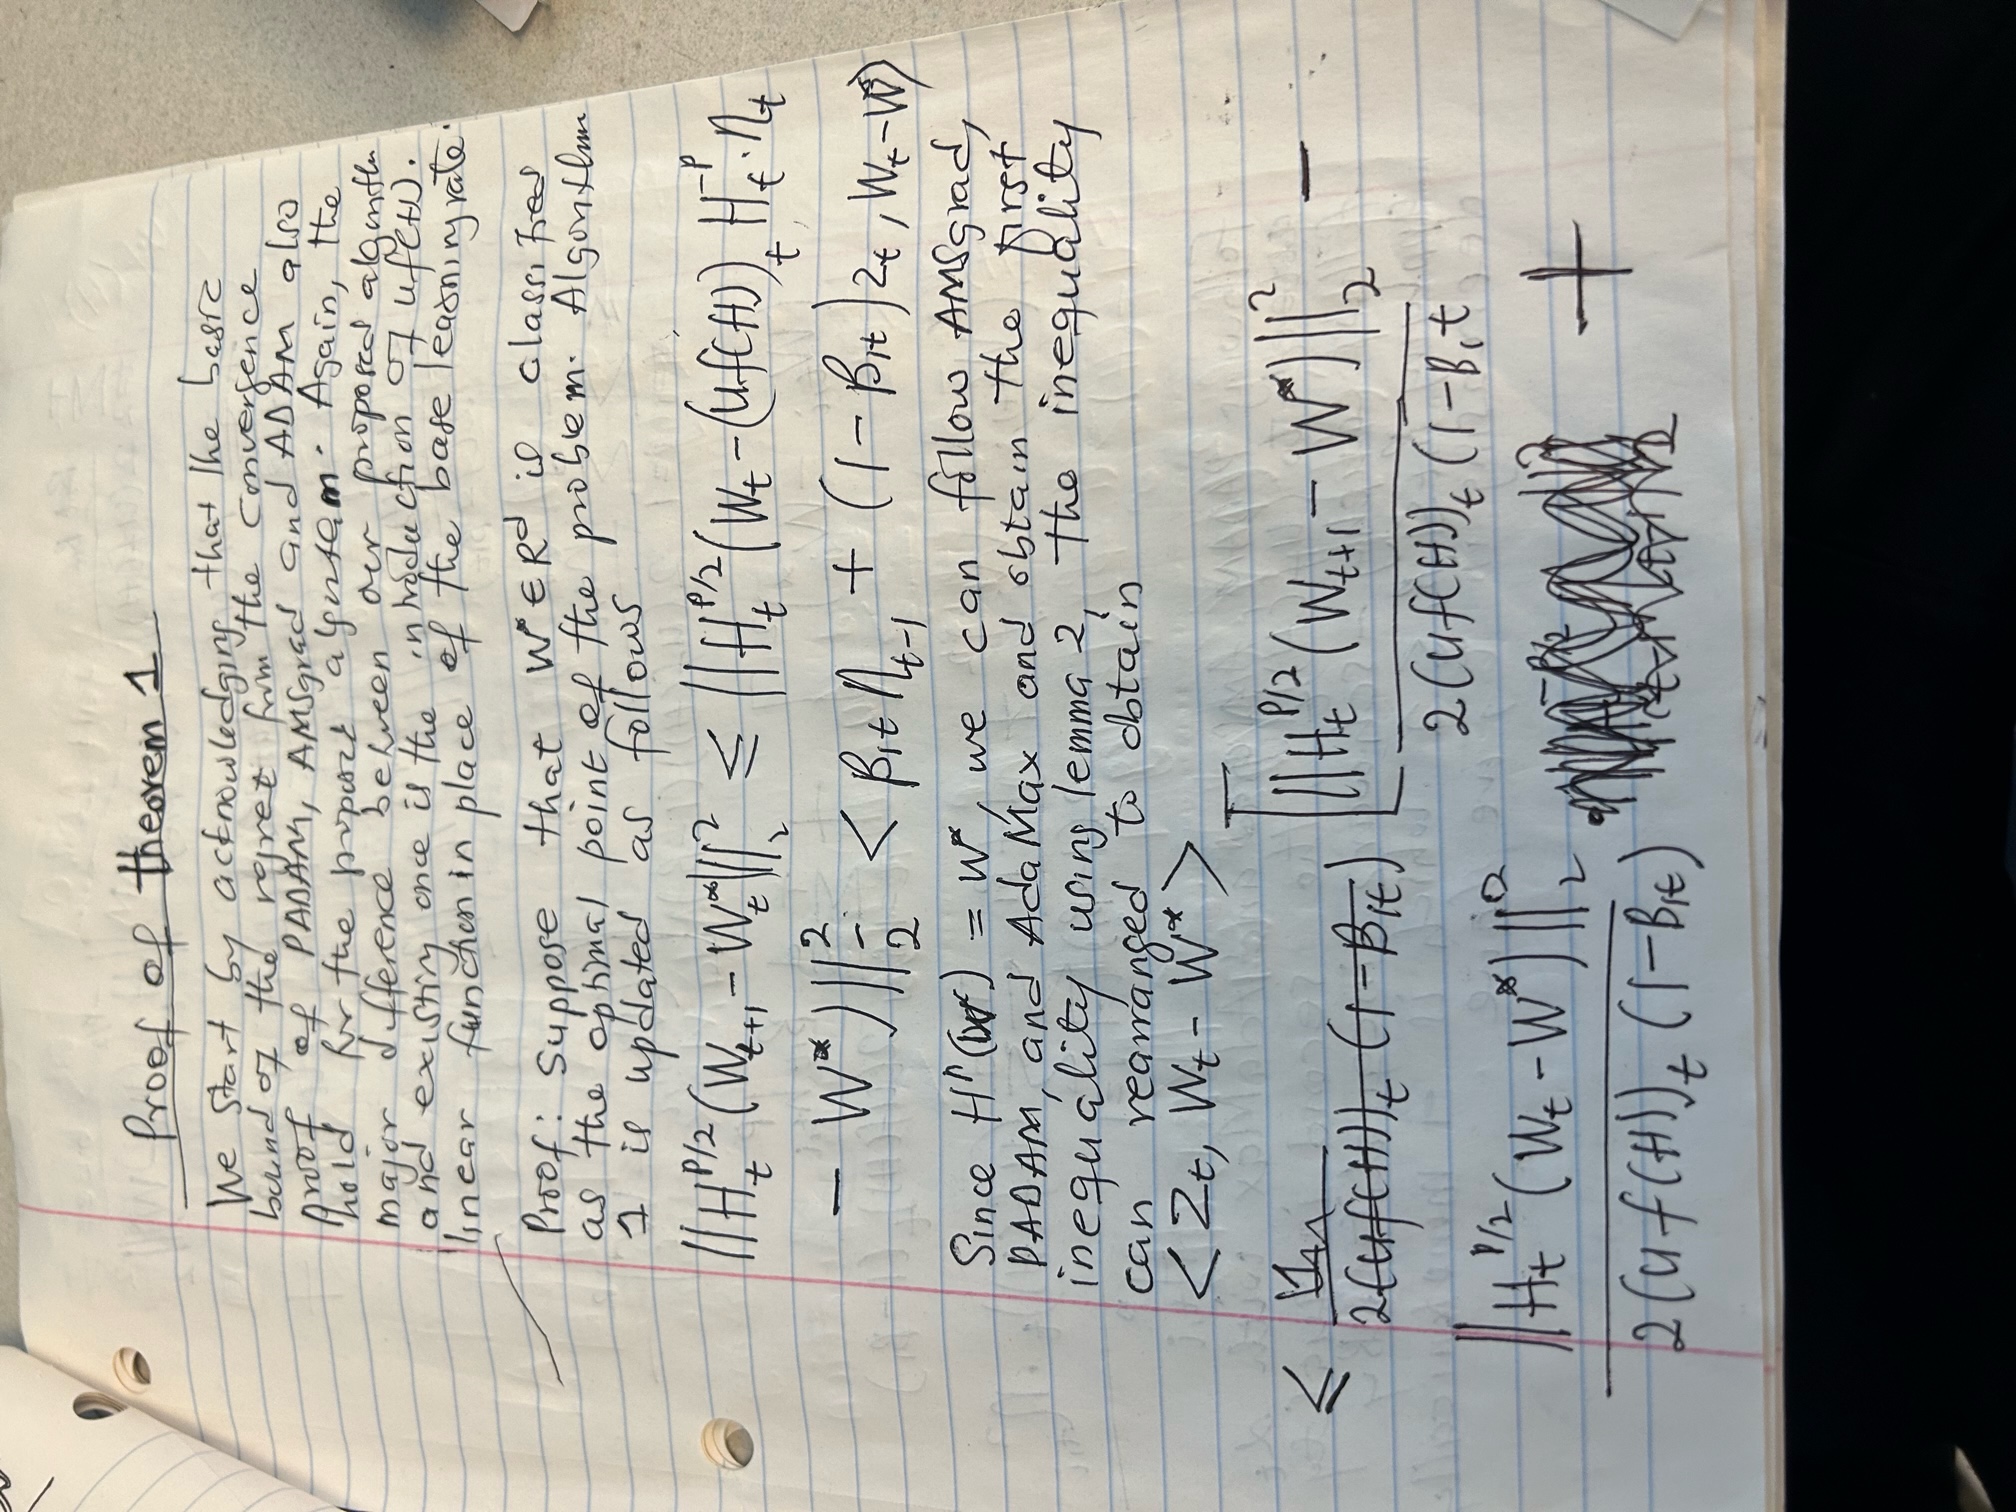 Proof of theorem 1
We start by acknowledging that the basic
bound of the regret from the convergence
proof of PADAM, AMSgrad and ADAM also
hold for the algorithm. Again, the
major difference between our proposed algorithm
and existing once is the introduction of uf(H).
linear function in place of the base learning rate.
Proof: Suppose that W* ∈ R^d is classified
as the optimal point of the problem. Algorithm
1 is updated as follows
||H_t^{P/2} (W_{t+1} - W_t^*||_2^2 ≤ ||H_t^{P/2} (W_t - (Uf(H))_t H_t^{-P} · η_t
- W*)||_2^2 - < β_{1t} η_{t-1} + (1 - β_{1t}) z_t, W_t - W*>
Since H^P(W*) = W*, we can follow AMSgrad,
PADAM, and AdaMax and obtain the first
inequality using lemma 2, the inequality
can rearranged to obtain
< Z_t, W_t - W* >
≤ [ ||H_t^{P/2} (W_{t+1} - W*)||_2^2 / 2(Uf(H))_t (1 - β_1t -
||H_t^{P/2} (W_t - W*)||_2^2 / 2(Uf(H))_t (1 - β_{1t}) +